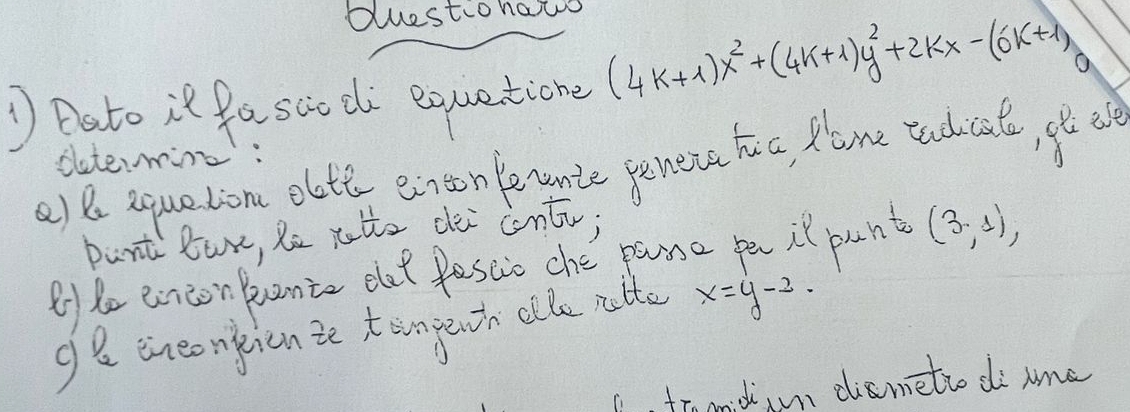 Questionario
1) Dato il fascio di equazione (4K+1)x²+(4K+1)y²+2Kx-(6K+1)
determina:
a) le equazioni delle circonferenze generatrici, l'asse radicale, gli
punti base, la retta dei centri;
b) la circonferenza del fascio che passa per il punto (3,1),
c) le circonferenze tangenti alla retta x=y-3.
un diametro di una